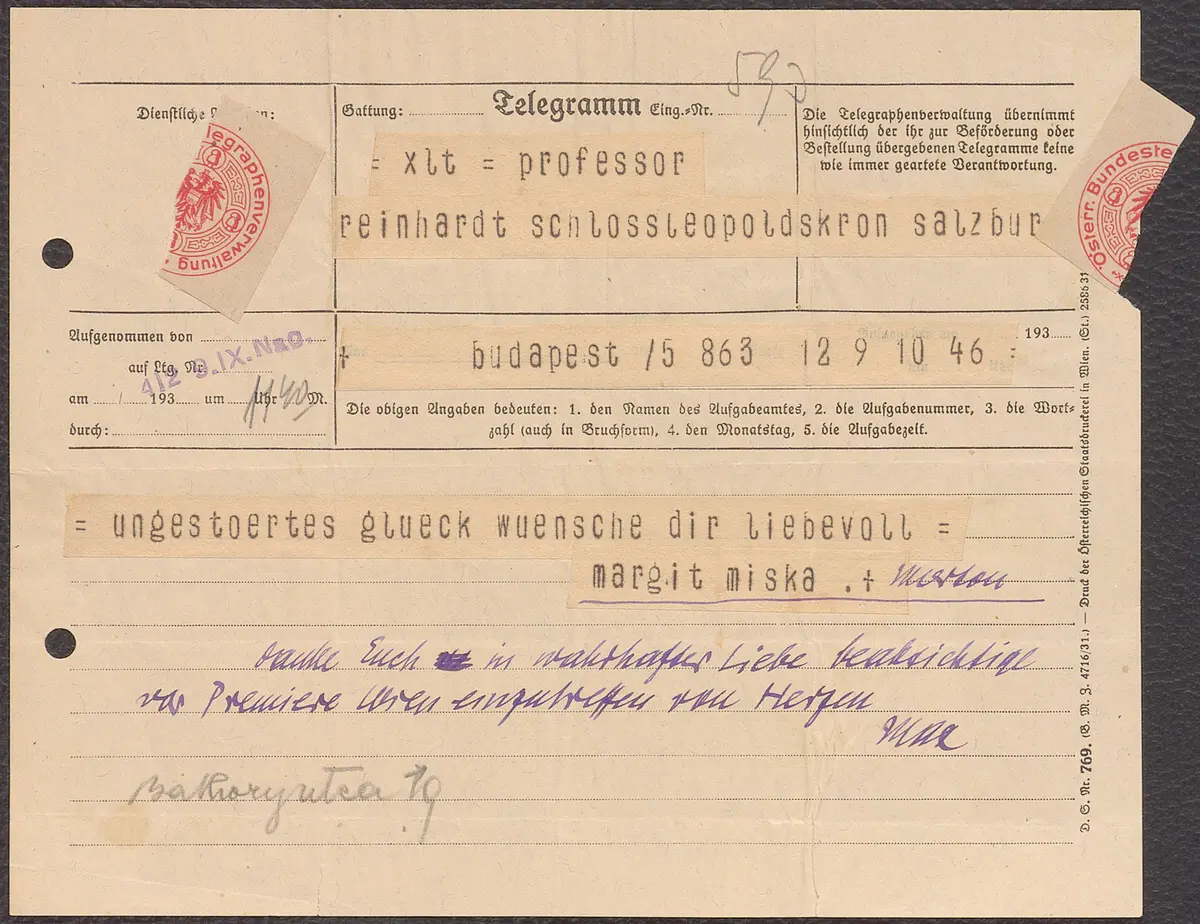 Dienstliche
Gattung: Telegramm Eing.-Nr.
Die Telegraphenverwaltung übernimmt
hinsichtlich der ihr zur Beförderung oder
Bestellung übergebenen Telegramme keine
wie immer geartete Verantwortung.
= xlt = professor
reinhardt schlossleopoldskron salzbur
Telegraphenverwaltung
Österr. Bundeste
Aufgenommen von
auf Ltg. Nr.
412 9.IX.Nag.
am 193 um Uhr M.
1140
durch:
+ budapest /5 863 12 9 10 46 =
193
Die obigen Angaben bedeuten: 1. den Namen des Aufgabeamtes, 2. die Aufgabenummer, 3. die Wort-
zahl (auch in Bruchform), 4. den Monatstag, 5. die Aufgabezeit.
= ungestoertes glueck wuensche dir liebevoll =
margit miska .+
danke Euch in wahrhafter Liebe beabsichtige
vor Premiere Wien einzutreffen von Herzen
Max
utca 19
D. S. Nr. 769. (B. M. Z. 4716/31.) — Druck der Österreichischen Staatsdruckerei in Wien. (St.) 2586 31